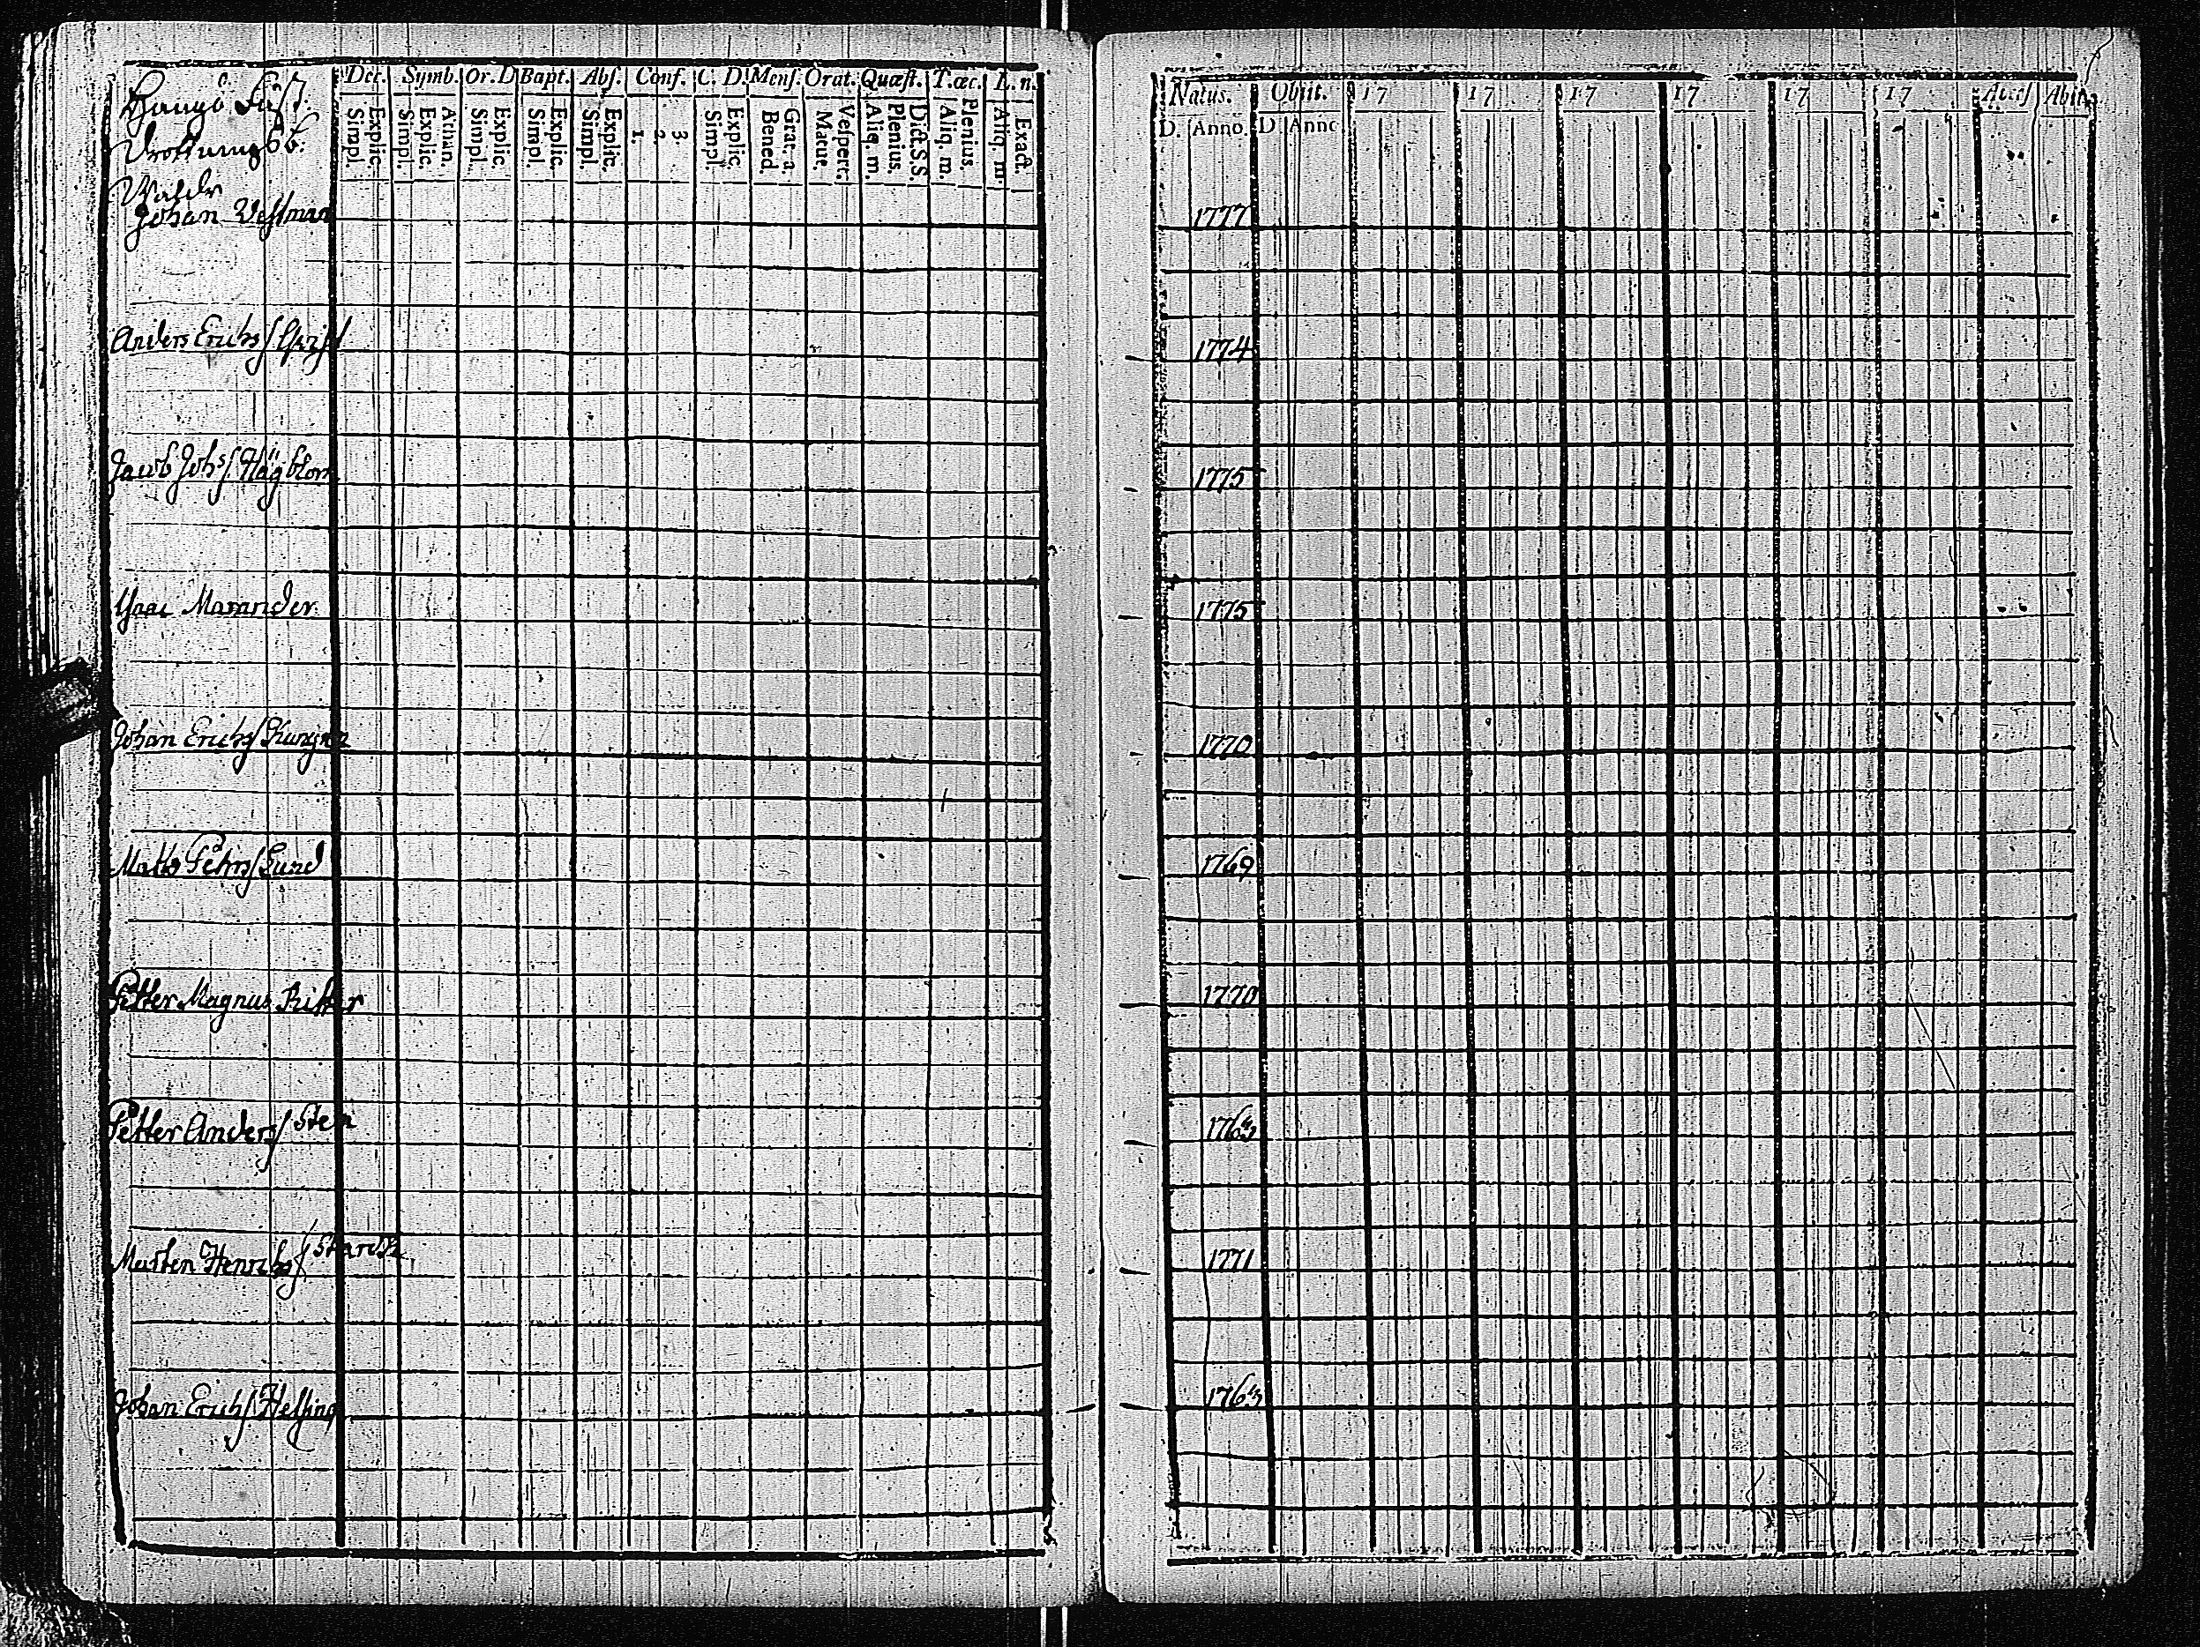 Dec. Symb. Or. D Bapt. Abs. Conf. C. D. Mens. Orat. Quæst. T. œc. L. n.
Simpl. Explic. Simpl. Explic. Athan. Simpl. Explic. Simpl. Explic. Simpl. Explic. 1. 2. 3. Simpl. Explic. Bened. Grat. a. Matut. Vespert. Aliq. m. Plenius. Dict. S. S. Aliq. m. Plenius. Aliq. m. Exact.
Natus. Obiit. 17 17 17 17 17 17 Access Abiit
D. Anno. D Anno
Hangö Fäst.
Johan Westman 1777
Anders Erichs 1774
Jacob Johs Hägblom 1775
Isaac Mamrider 1775
Johan Erichs 1770
Matts Pehrs Lund 1769
Petter Magnus Ritter 1770
Petter Anders Sten 1763
Mårten Henrichs Starck 1771
Johan Erichs Helsing 1763